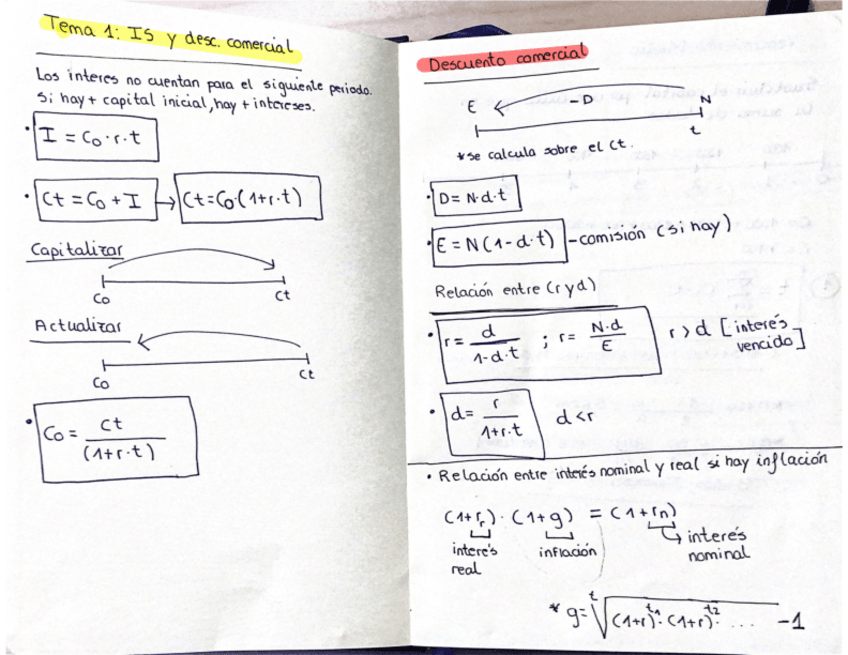 Tema 1: IS y desc. comercial
Los interes no cuentan para el siguiente periodo.
Si hay + capital inicial, hay + intereses.
• I = Co · r · t
• Ct = Co + I → Ct = Co · (1 + r · t)
Capitalizar
Co Ct
Actualizar
Co Ct
• Co = Ct / (1 + r · t)
Descuento comercial
E - D N
t
* se calcula sobre el Ct.
• D = N · d · t
• E = N (1 - d · t) - comisión (si hay)
Relación entre (r y d)
• r = d / 1 - d · t ; r = N · d / E r > d [interés vencido]
• d = r / 1 + r · t d < r
• Relación entre interés nominal y real si hay inflación
(1 + rr) · (1 + g) = (1 + rn)
interés real inflación ↳ interés nominal
* g = t√(1+r)^t1 · (1+r)^t2 · ... - 1